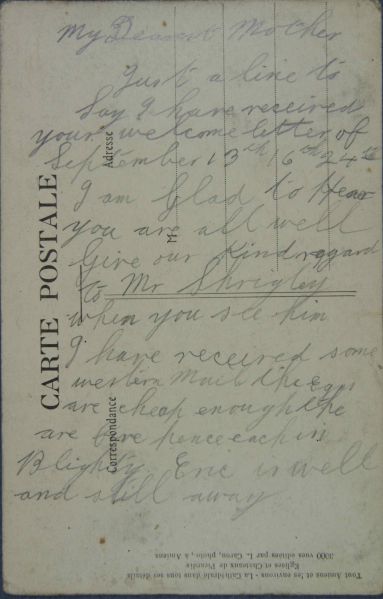 My Dearest Mother
Just a line to
Say I have received
your welcome letter of
September 13th 16th 24th
I am Glad to Hear
you are all well
Give our Kind regard
to Mr Shrigley
when you see him
I have received some
western Mail the eggs
are cheap enough the
are five pence each in
Blighty. Eric is well
and still away
CARTE POSTALE
Correspondance
Adresse
M
Tout Amiens et les environs - La Cathédrale dans tous ses détails
Eglises et Chateaux de Picardie
3000 vues éditées par L. Caron, photo, à Amiens